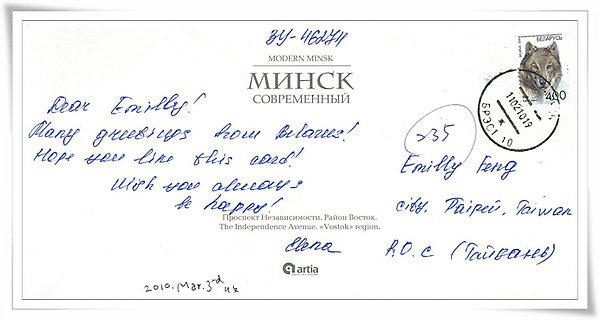 BY-46274
MODERN MINSK
МИНСК
СОВРЕМЕННЫЙ
БЕЛАРУСЬ
400
11021019
БРЭСТ 10
Dear Emilly!
Many greetings from Belarus!
Hope you like this card!
Wish you always
be happy!
Elena
235
Emilly Feng
city. Taipei, Taiwan
R.O.C (Тайвань)
Проспект Независимости. Район Восток.
The Independence Avenue. «Vostok» region.
artia
2010. Mar. 3rd